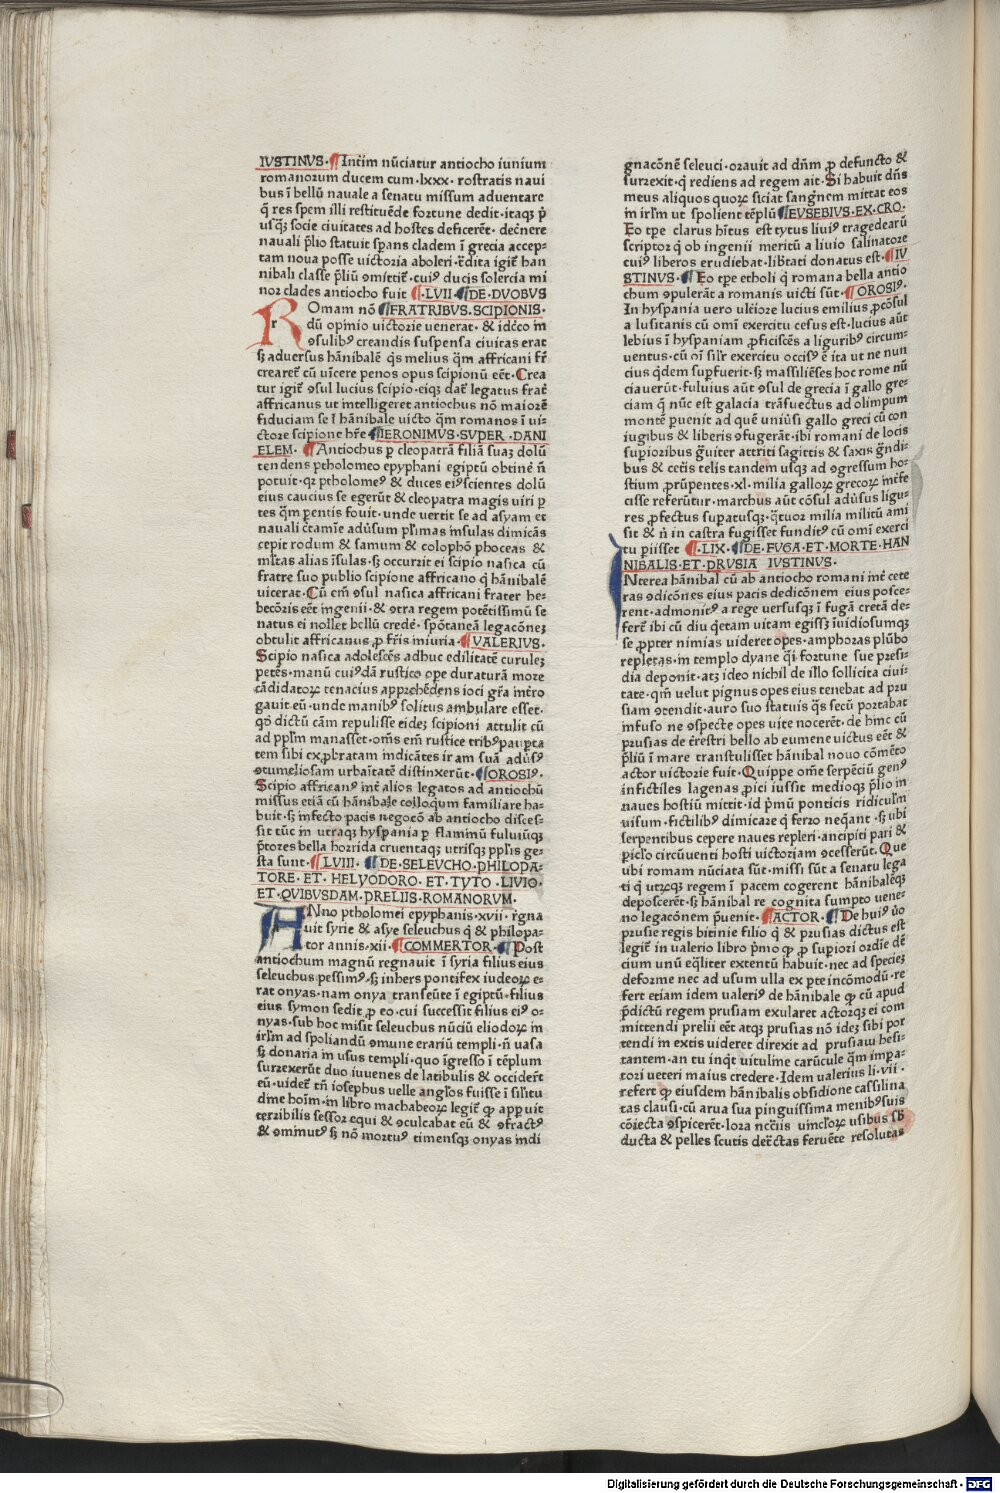 IVSTINVS· ¶Inteim nūciatur antiocho iunium
romanorum ducem cum·lxxx· rostratis naui
bus ī bellū nauale a senatu missum aduentare
q̄ res spem illi restituēde fortune dedit·itaqꝫ p̄
usqꝫ socie ciuitates ad hostes deficerēt· decnere
nauali p̄lio statuit spans cladem ī grecia accep-
tam noua posse uictoria aboleri·tdita igit han
nibali classe p̄liū ɔmittit·cuiꝰ ducis solercia mi
noꝝ clades antiocho fuit ¶·LVII·¶DE·DVOBVS
ROmam nō ¶FRATRIBVS·SCIPIONIS·
dū opinio uictorie uenerat· & idcco in
ɔsulibꝰ creandis suspensa ciuitas erat
sꝫ aduersus hānibalē q̄s melius q̄m affricani fr̄
crearet cū uīcere penos opus scipionū eēt·Crea
tur igit ɔsul lucius scipio·eiqꝫ dat legatus frat
affricanus ut intelligeret antiochus nō maiorē
fiduciam se ī hānibale uicto q̄m romanos ī ui-
ctore scipione hr̄e ¶IERONIMVS·SVPER·DANI
ELEM· ¶Antiochus p cleopatrā filiā suaꝫ dolū
tendens ptholomeo epyphani egiptū obtinē n̄
potuit·qꝛ ptholomeꝰ & duces eiꝰ scientes dolū
eius caucius se egerūt & cleopatra magis uiri p
tes q̄m pentis fouit·unde uertit se ad asyam et
nauali ctamīe adūsum plimas insulas dimicās
cepit rodum & samum & colophō phoceas &
mltas alias īsulas·sꝫ occurrit ei scipio nasica cū
fratre suo publio scipione affricano q̄ hānibalē
uicerat·Cū em̄ ɔsul nasica affricani frater he-
becōris eēt ingenii·& ɔtra regem potētissimū se
natus ei nollet bellū crede· spōtaneā legacōneꝫ
obtulit affricanus ꝓ fr̄is iniuria·¶VALERIVS·
Scipio nasica adolescēs adhuc edilitatē curuleꝫ
petēs·manū cuiꝰdā rustico ope duraturā more
cādidatoꝝ tenacius apprehēdens ioci gr̄a int̄ro
gauit eū·unde manibꝰ solitus ambulare esset·
qd̓ dictū cām repulisse eideꝫ scipioni attulit cū
ad pplm manasset·om̄s em̄ rustice tribꝰ paupta
tem sibi exꝓbratam indicātes iram suā adūsꝰ
ɔtumeliosam urbaītatē distinxerūt·¶OROSIꝰ·
Scipio affricanꝰ int̄ alios legatos ad antiochū
missus etiā cū hānibale colloqum familiare ha-
buit·sꝫ infecto pacis negocō ab antiocho disces-
sit tūc in utraqꝫ hyspania p flaminū fuluiūqꝫ
p̄tores bella horrida cruentaqꝫ utrisqꝫ pplis ge-
sta sunt·¶LVIII· ¶DE·SELEVCHO·PHILOPA-
TORE·ET·HELYODORO·ET·TYTO·LIVIO·
ET·QVIBVSDAM·PRELIIS·ROMANORVM·
ANno ptholomei epyphanis·xvii· r̄gna
uit syrie & asye seleuchus q̄ & philopa-
tor annis·xii·¶COMMERTOR·¶Post
antiochum magnū regnauit ī syria filius eius
seleuchus pessimꝰ·sꝫ inhers pontifex iudeoꝝ e-
rat onyas·nam onya transeūte ī egiptū·filius
eius symon sedit ꝓ eo·cui successit filius eiꝰ o-
nyas·sub hoc misit seleuchus nūciū eliodoꝝ in
irlm̄ ad spoliandū ɔmune erariū templi·n̄ uasa
sꝫ donaria in usus templi·quo īgresso ī tēplum
surzexerūt duo iuuenes de latibulis & occidert
eū·uidet tn̄ iosephus uelle anglos fuisse ī silitu
dīne hoīm·in libro machabeoꝝ legit qꝫ appuit
terribilis sessor equi & ɔculcabat eū & ɔfractꝰ
& ɔminutꝰ sꝫ nō mortuꝰ timensqꝫ onyas indi
gnacōnē seleuci·orauit ad dn̄m ꝓ defuncto &
surzexit·q̄ rediens ad regem ait·Si habuit dn̄s
meus aliquos quoꝝ siciat sangnem mittat eos
in irlm̄ ut spolient tēplū ¶EVSEBIVS·EX·CRO·
Eo tpe clarus hītus est tytus liuiꝰ tragedearū
scriptor q̄ ob ingenii meritū a liuio salinatore
cuiꝰ liberos erudiebat·libtati donatus est·¶IV
STINVS·¶Eo tpe etholi q̄ romana bella antio
chum ɔpulerāt a romanis uicti sūt·¶OROSIꝰ·
In hyspania uero ulteiore lucius emilius ꝓcōsul
a lusitanis cū omī exercitu cesus est·lucius aūt
lebius ī hyspaniam ꝓficiscēs a liguribꝰ circum-
uentus·cū oī silr exercitu occisꝰ ē ita ut ne nun
cius qdem supfuerit·sꝫ massiliēses hoc rome nū
ciauerūt·fuluius aūt ɔsul de grecia ī gallo gre-
ciam q̄ nūc est galacia trāsuectus ad olimpum
montē puenit ad quē uniūsi gallo greci cū con
iugibus & liberis ɔfugerāt·ibi romani de locis
supioribus g̈uiter attriti sagittis & saxis g̈ndi-
bus & cetis telis tandem usqꝫ ad ɔgressum ho-
stium ꝓrūpentes·xl·milia galloꝝ grecoꝝ int̄fe
cisse referūtur·marchus aūt cōsul adūsus ligu-
res ꝓfectus supatusqꝫ·q̄tuor milia militū ami
sit & n̄ in castra fugisset funditꝰ cū omī exerci
tu piisset ¶·LIX·¶DE·FVGA·ET·MORTE·HAN
NIBALIS·ET·PRVSIA IVSTINVS·
INterea hānibal cū ab antiocho romani int̄ cete
ras ɔdicōnes eius pacis dedicōnem eius posce-
rent·admonitꝰ a rege uersusqꝫ ī fugā cretā de-
fert ibi cū diu q̄etam uitam egissꝫ īuidiosumqꝫ
se ppter nimias uideret opes·amphoras plūbo
repletas·in templo dyane q̄i fortune sue presi-
dia deponit·atqꝫ ideo nichil de illo sollicita ciui-
tate·qm̄ uelut pignus opes eius tenebat ad pru
siam ɔtendit·auro suo statuis q̄s secū portabat
infuso ne ɔspecte opes uite nocerēt·de hinc cū
prusias de trestri bello ab eumene uictus eēt &
p̄liū ī mare transtulisset hānibal nouo cōmēto
actor uictorie fuit·Quippe om̄e serpēciū genꝰ
īnfictiles lagenas ꝓici iussit medioqꝫ p̄lio in
naues hostiū mittit·id p̄mū ponticis ridiculm̄
uisum·fictilibꝰ dimicare q̄ ferro neq̄ant·sꝫ ubi
serpentibus cepere naues repleri·ancipiti pari &
piclo circūuenti hosti uictoriam ɔcesserūt·Que
ubi romam nūciata sūt·missi sūt a senatu lega
ti q̄ utꝝqꝫ regem ī pacem cogerent hānibalēqꝫ
deposcerēt·sꝫ hānibal re cognita sumpto uene-
no legacōnem p̄uenit·¶ACTOR·¶De huiꝰ ūo
prusie regis bitinie filio q̄ & prusias dictus est
legit in ualerio libro p̄mo qꝫ ꝓ supiori ordīe dē
cium unū eq̄liter extentū habuit·nec ad specieꝫ
deforme nec ad usum ulla ex pte incōmodū·re
fert etiam idem ualeriꝰ de hānibale qꝫ cū apud
p̄dictū regem prusiam exularet actorqꝫ ei com
mittendi prelii eēt atqꝫ prusias nō ideꝫ sibi por
tendi in extis uideret direxit ad prusiam hesi-
tantem·an tu inqt uitulīne carūcule q̄m impa-
tori ueteri maius credere·Idem ualerius li·vii·
refert qꝫ eiusdem hānibalis obsidione cassilina
tas clausi·cū arua sua pinguissima menibꝰ suis
cōiecta ɔspicerēt·lora nec̄iis uincloꝝ usibus sb̄
ducta & pelles scutis detctas feruēte resolutas
Digitalisierung gefördert durch die Deutsche Forschungsgemeinschaft · DFG